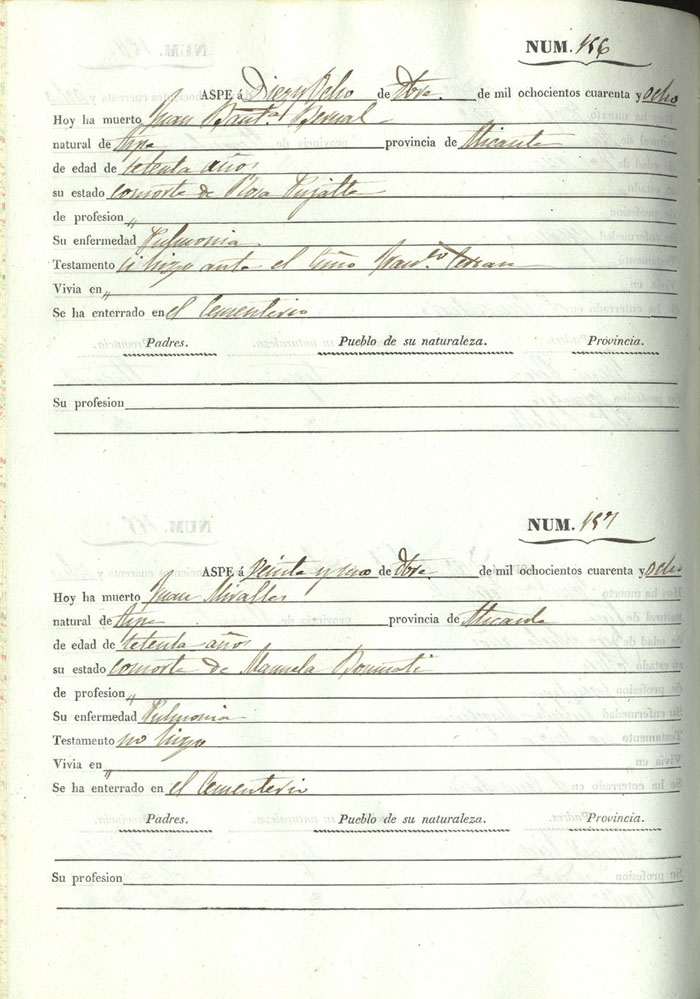 NUM. 156
ASPE á Diez y Ocho de Dbre. de mil ochocientos cuarenta y Ocho
Hoy ha muerto Juan Baut.ª Bernal
natural de Aspe provincia de Alicante
de edad de setenta años
su estado consorte de Rosa Pujalte
de profesion „
Su enfermedad Pulmonia
Testamento si hizo ante el Fran.co
Vivia en „
Se ha enterrado en el Cementerio
Padres. Pueblo de su naturaleza. Provincia.
Su profesion
NUM. 157
ASPE á Veinte y uno de Dbre. de mil ochocientos cuarenta y Ocho
Hoy ha muerto Juan Miralles
natural de Aspe provincia de Alicante
de edad de setenta años
su estado consorte de Manuela Bonmati
de profesion „
Su enfermedad Pulmonia
Testamento no hizo
Vivia en „
Se ha enterrado en el Cementerio
Padres. Pueblo de su naturaleza. Provincia.
Su profesion